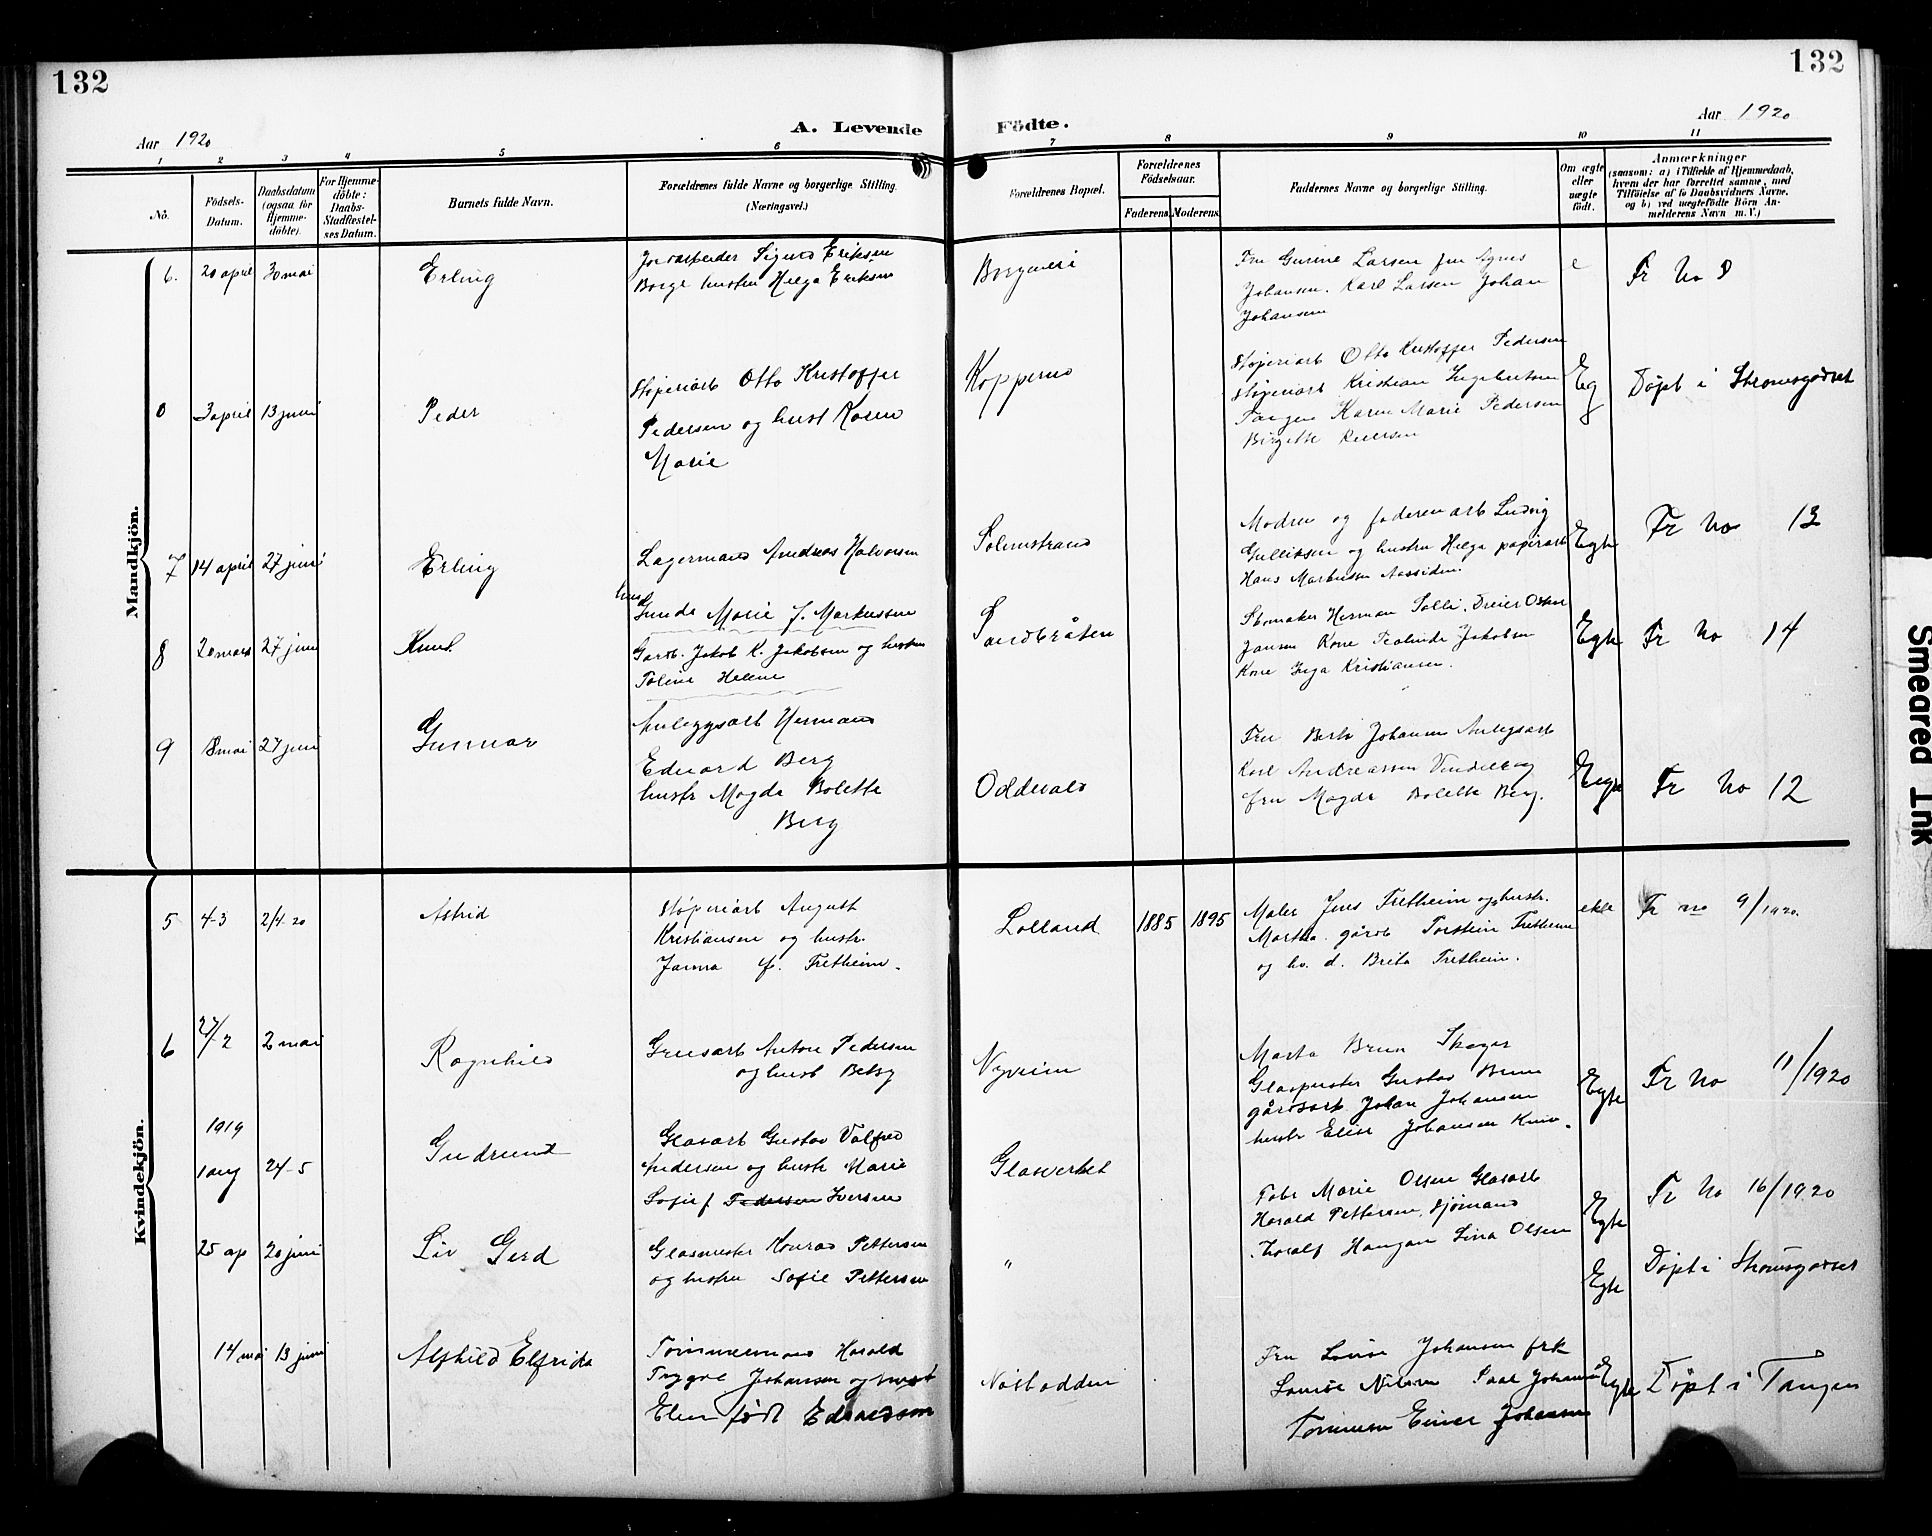 132
132
Aar 1920
A. Levende
Födte.
Aar 1920
1 2 3 4 5 6 7 8 9 10 11
No.
Födsels-Datum.
Daabsdatum (ogsaa for Hjemmedöbte).
For Hjemmedöbte: Daabs-Stadfestelses Datum.
Barnets fulde Navn.
Forældrenes fulde Navne og borgerlige Stilling.
(Næringsvei.)
Forældrenes Bopæl.
Forældrenes Födselsaar.
Faderens. Moderens.
Faddernes Navne og borgerlige Stilling.
Om ægte eller uægte födt.
Anmærkninger
(saasom: a) i Tilfælde af Hjemmedaab, hvem der har forrettet samme, med Tilföielse af to Daabsvidners Navne, og b) ved uægtefödte Börn Anmelderens Navn m. V.)
Mandkjön.
6. 20 april 30 mai
Erling
Jernarbeider Sigurd Eriksen
Borge hustru Helga Eriksen
Fru Gurine Larsen fru Agnes
Johansen. Karl Larsen Johan
Johansen
e
Fr No 8
0 3 april 13 juni
Peder
Støperiarb Otto Kristoffer
Pedersen og hust Karen
Marie
Kopperud
Støperiarb Otto Kristoffer Pedersen
Støperiarb Kristian Ingebretsen
Tangen Karen Marie Pedersen
Birgitte
Eg
Døpt i Strømsgodset
7 14 april 27 juni
Erling
Lagermand Andreas Halvorsen
hus Gunda Marie f. Markussen
Solumstrand
Modren og faderen arb Ludvig
Gulliksen og hustru Helga papirarb
Hans Markussen Aassiden.
Egte
Fr No 13
8 20 mars 27 juni
Knud
Garb. Jakob K. Jakobsen og hustru
Toline Helene
Sandbråten
Skomaker Herman Solli. Dreier Oskar
Jansen Kone Jakobsen
Kone Inga Kristiansen.
Egte
Fr No 14
9 18 mai 27 juni
Gunnar
Anleggsarb Herman
Edvard Berg
hustr Magda Bolette
Berg
Oddevald
Fru Berta Johansen Anlegsarb
Karl Andreassen
fru Magda Bolette Berg.
Fr No 12
Kvindekjön.
5 4-3 2/4-20
Astrid
Støperiarb August
Kristiansen og hustr.
Janna f. Fretheim.
Lolland
1885 1895
Maler Jens Fretheim og hustr.
Martha. gårdb Torstein Fretheim
og hs. d. Brita Fretheim.
ekte
Fr no 9/1920.
6 27/2 2 mai
Ragnhild
Grusarb Anton Pedersen
og hust Betsy
Nyveien
Marta Brun Skoger
Glaspuster Gustav Brun
gårdsarb Johan Johansen
hustr Elise Johansen
Egte
Fr No 11/1920
1919
1 aug 24-5
Gudrund
Glasarb Gustav Valfred
Andersen og hustr Marie
Sofie f Pedersen Iversen
Glasverket
Fabr Marie Olsen Glasarb
Harald Pettersen, sjømand
Toralf Haugan Lina Olsen
Egte
Fr No 16/1920
25 ap 20 juni
Liv Gerd
Glasmester Konrad Pettersen
og hustru Sofie Pettersen
"
Egte
Døpt i Strømsgodset
14 mai 13 juni
Alfhild Elfrida
Tømmermand Harald
Trygve Johansen og hust
Elen født Edvardsen
Nøstodden
Fru Lovise Johansen frk
Lovise Nilsen Paal Johansen
Tømmerm Einar Johansen
Egte
Døpt i Tangen
Smeared Ink